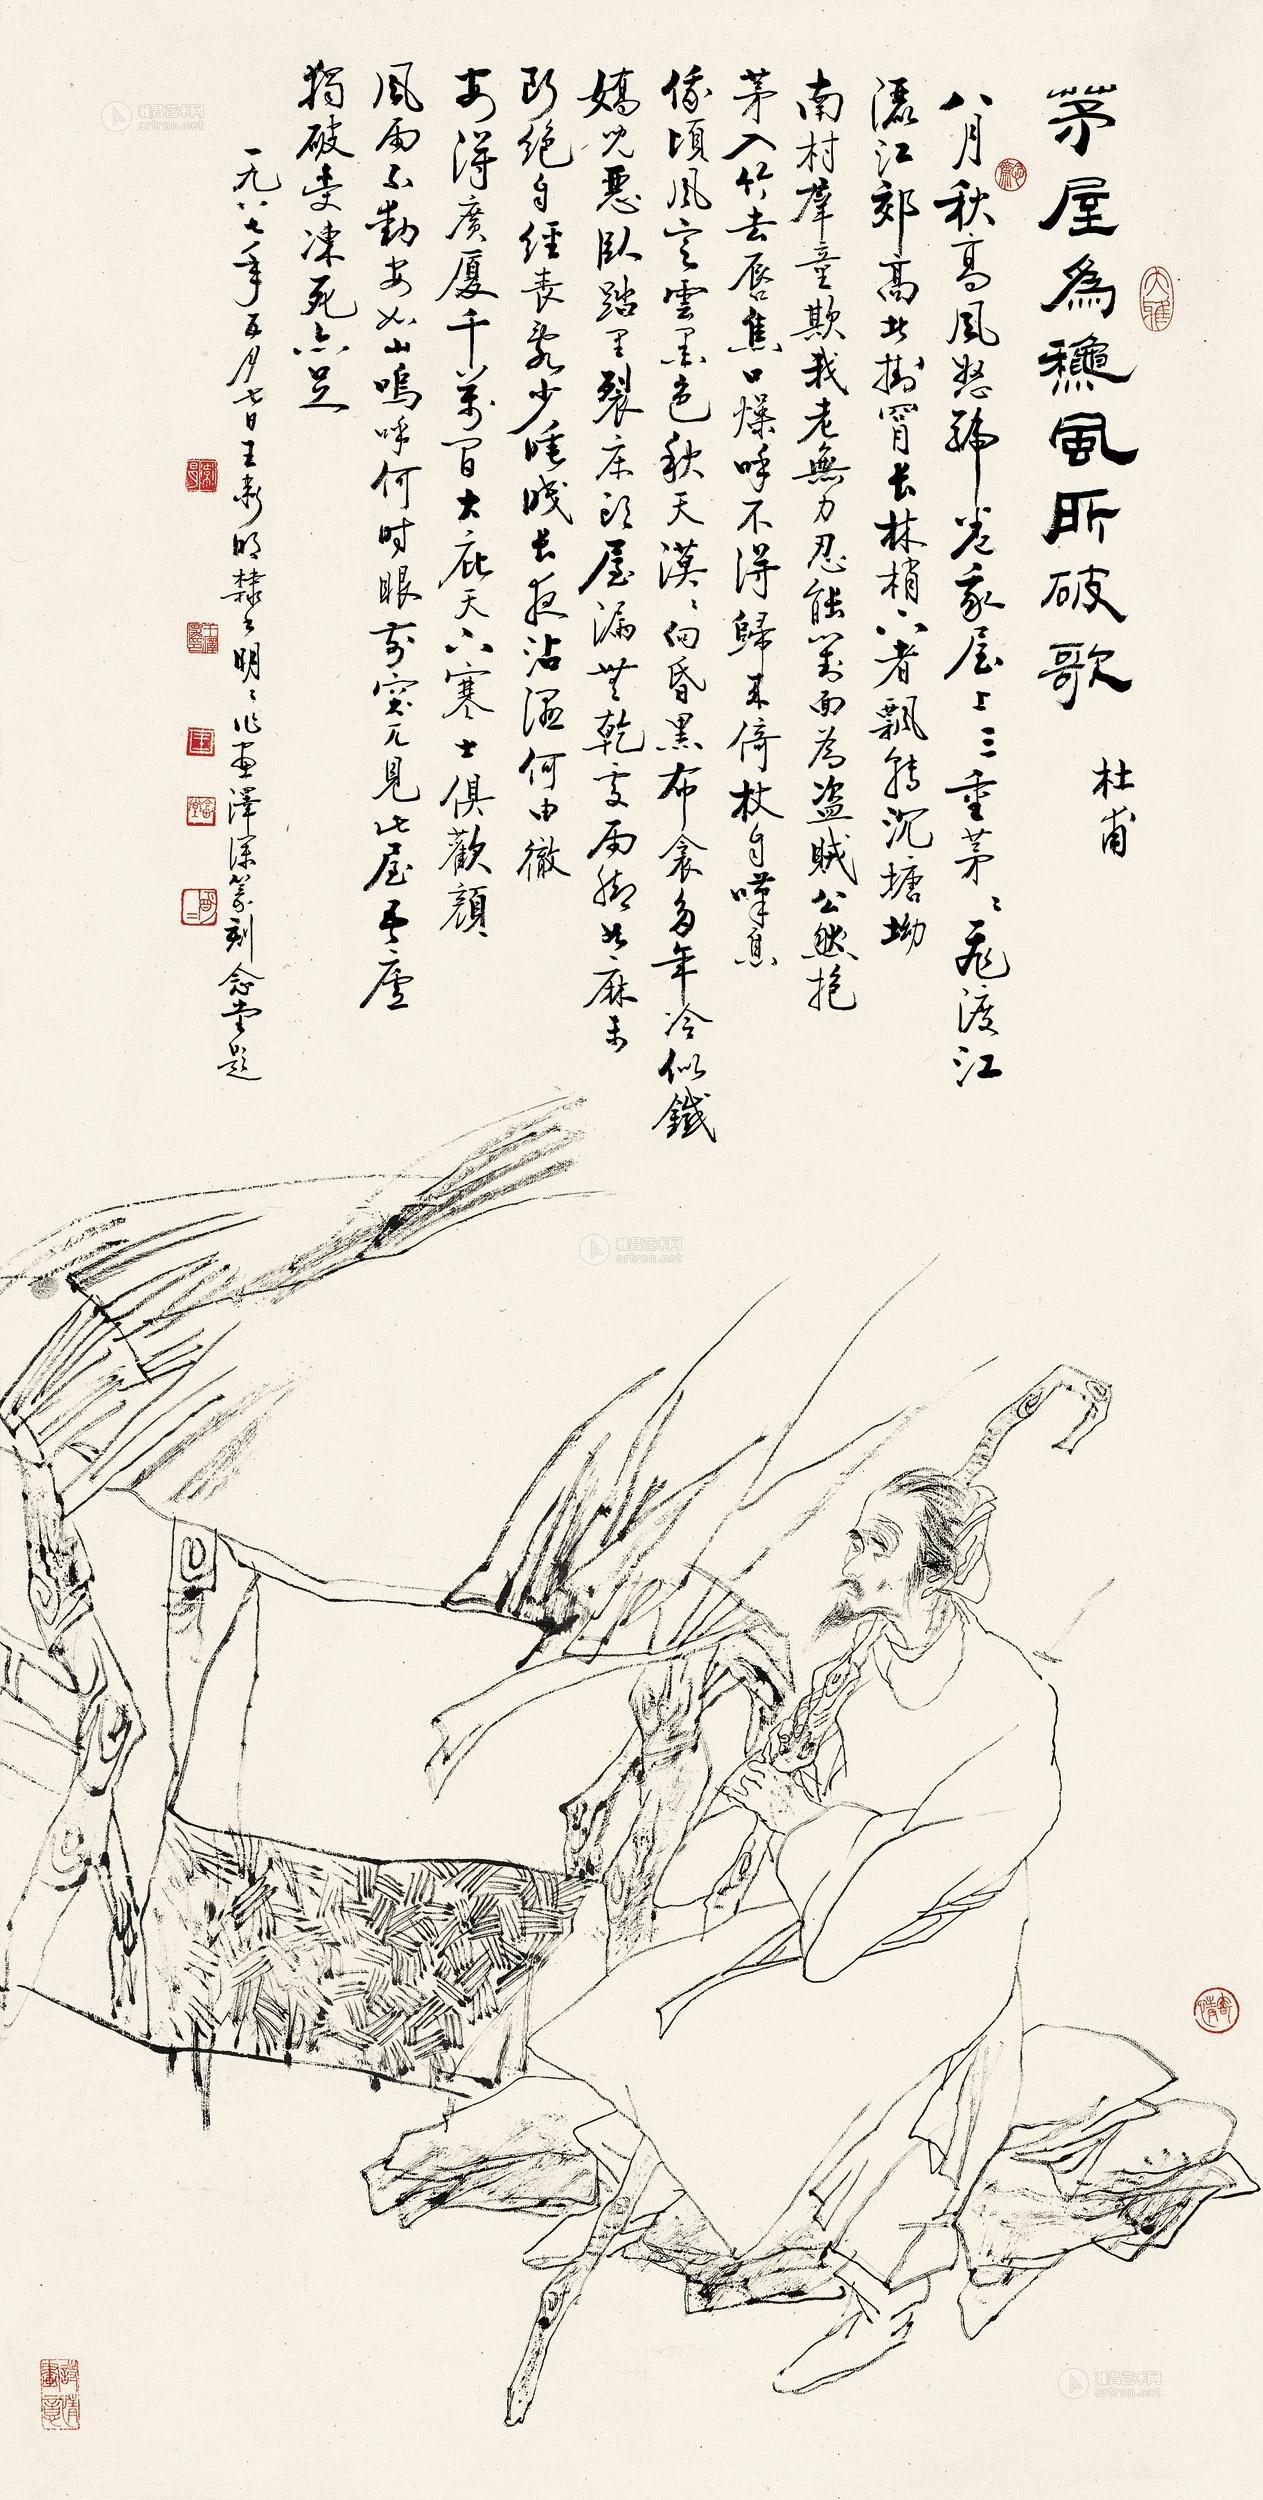 茅屋為龝風所破歌
杜甫
八月秋高風怒號卷我屋上三重茅〻飛渡江
灑江郊高者掛罥長林梢下者飄轉沉塘坳
南村羣童欺我老無力忍能對面為盜賊公然抱
茅入竹去唇焦口燥呼不得歸来倚杖自嘆息
俄頃風定雲墨色秋天漠〻向昏黑布衾多年冷似鐵
嬌兒惡臥踏里裂床頭屋漏無乾處雨脚如麻未
断絶自經喪亂少睡眠長夜沾濕何由徹
安得廣厦千萬間大庇天下寒士俱歡顔
風雨不動安如山嗚呼何時眼前突兀見此屋吾廬
獨破受凍死亦足
一九八七年五月七日王新明隸書明〻作画澤深篆刻念堂題
大雅
雅昌艺术网
artron.net
雅昌艺术网
artron.net
雅昌艺术网
artron.net